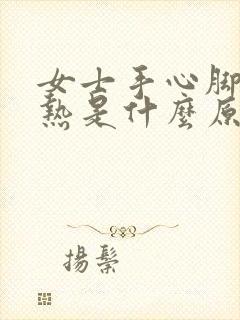 女士手心脚
熱是什麽原
揚鬃